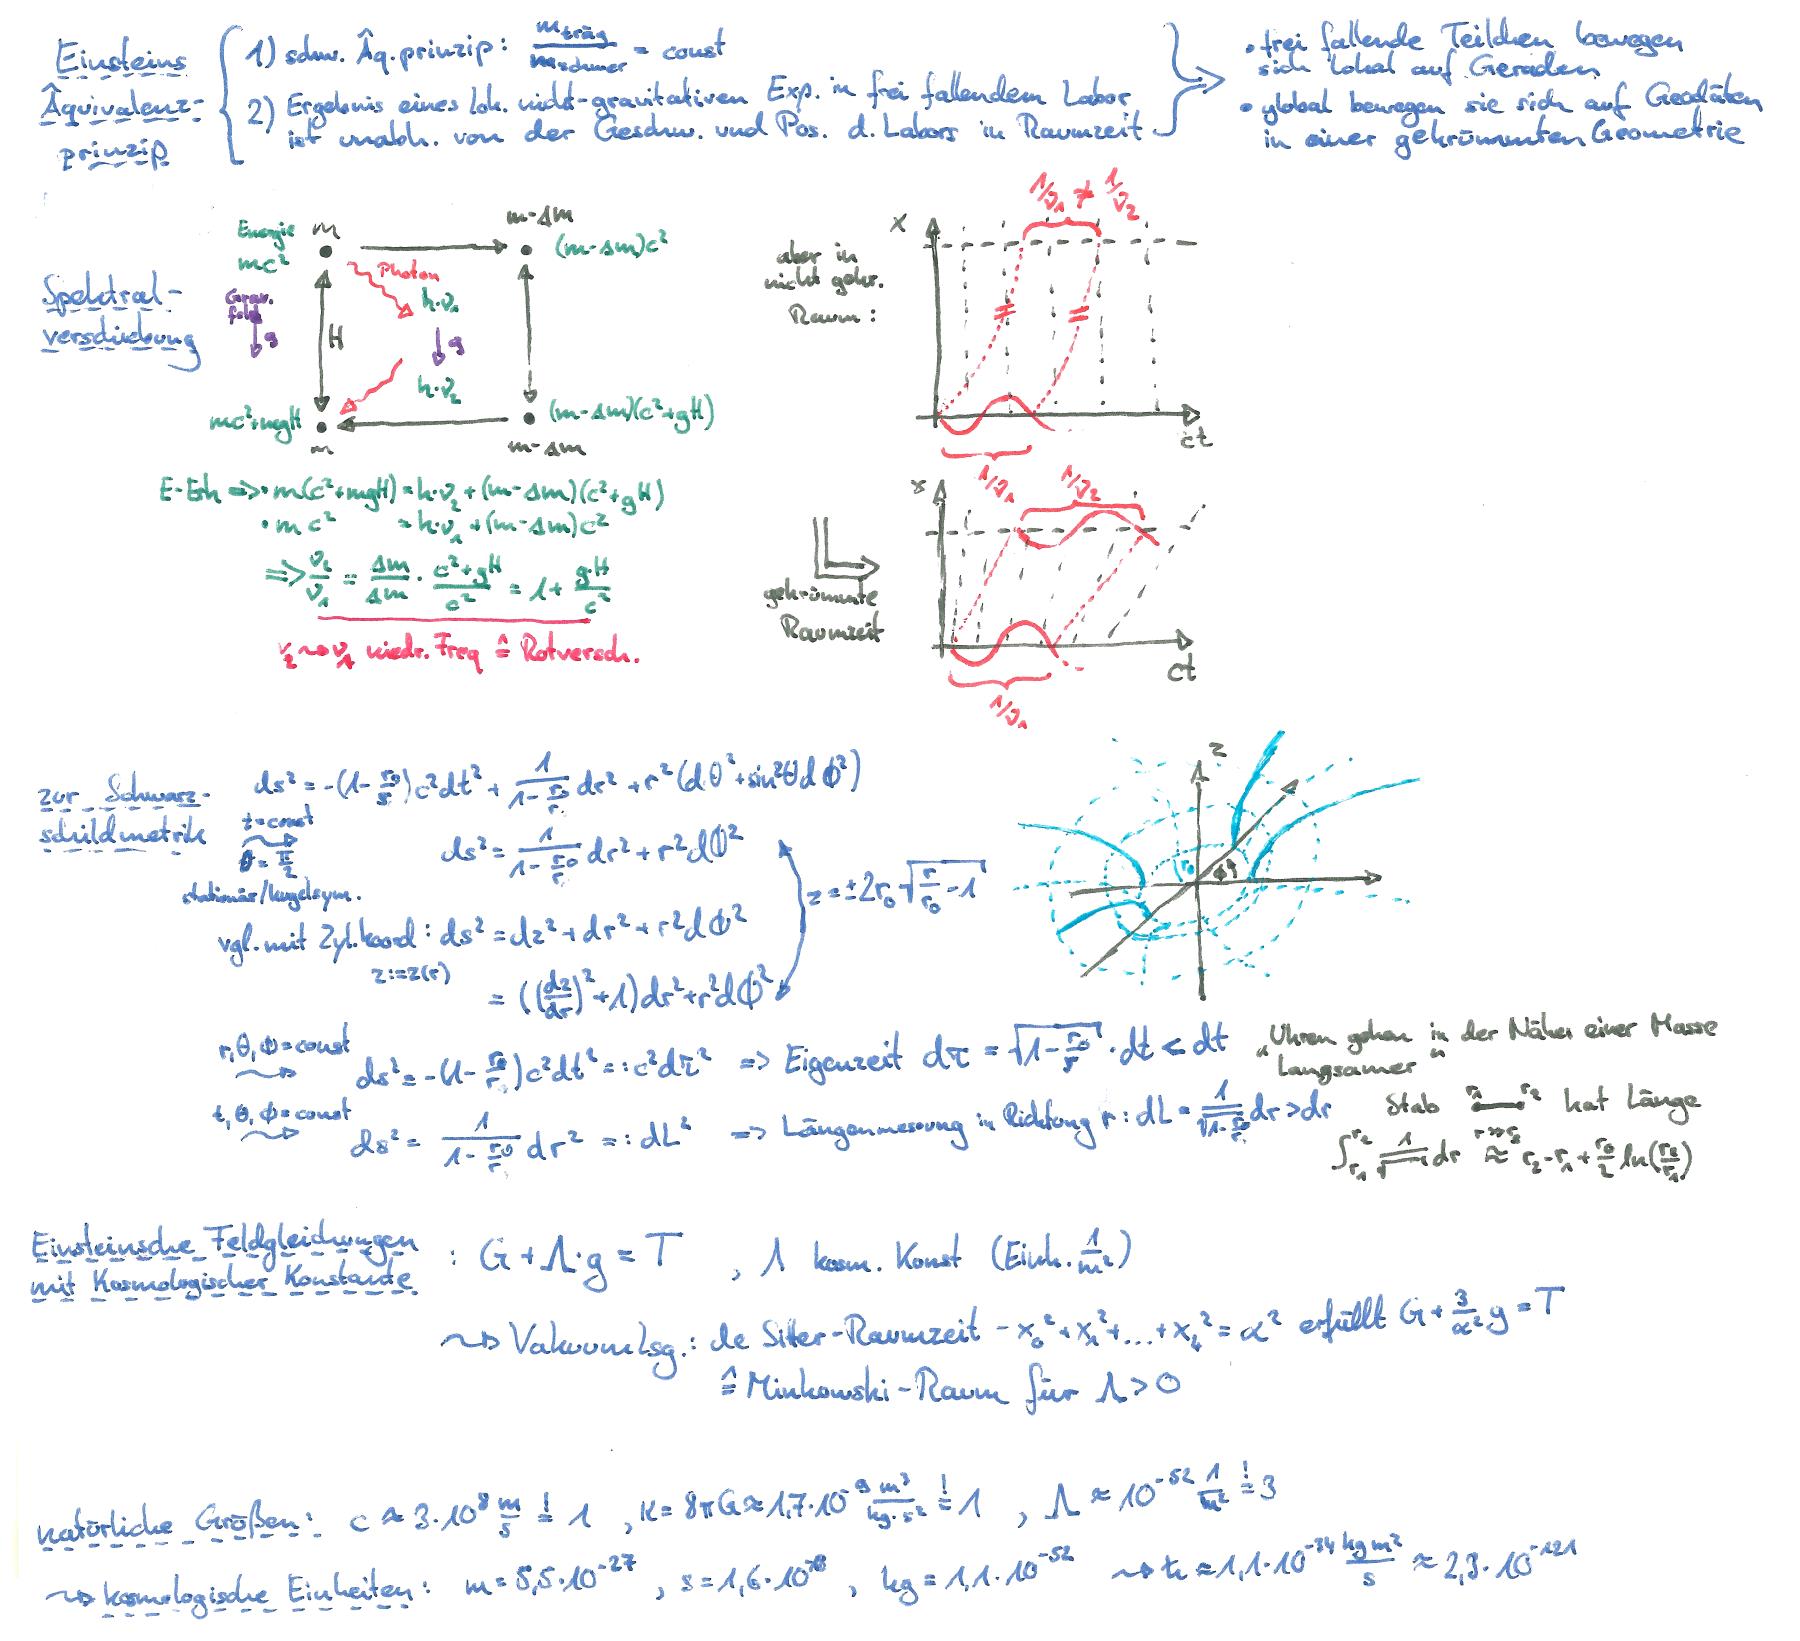 Einsteins
Äquivalenz-
prinzip
1) schw. Äq.prinzip: m_träg/m_schwer = const
2) Ergebnis eines lok. nicht-gravitativen Exp. in frei fallendem Labor
ist unabh. von der Geschw. und Pos. d. Labors in Raumzeit
• frei fallende Teilchen bewegen
sich lokal auf Geraden
• global bewegen sie sich auf Geodäten
in einer gekrümmten Geometrie
Spektral-
verschiebung
Energie
mc²
m
m-Δm
(m-Δm)c²
Photon
h·ν₁
Grav.
feld
g
H
g
h·ν₂
mc²+mgH
m
(m-Δm)(c²+gH)
m-Δm
E-Erh => • m(c²+mgH) = h·ν₂ + (m-Δm)(c²+gH)
• mc² = h·ν₁ + (m-Δm)c²
=> ν₂/ν₁ = Δm/Δm · (c²+gH)/c² = 1 + g·H/c²
ν₂ ⇝ ν₁ niedr. Freq ≙ Rotversch.
aber in
nicht gekr.
Raum:
x
1/ν₁ ≠ 1/ν₂
ct
1/ν₁
gekrümmte
Raumzeit
x
1/ν₂
ct
1/ν₁
zur Schwarz-
schildmetrik
ds² = -(1-r₀/r)c²dt² + 1/(1-r₀/r) dr² + r²(dθ²+sin²θdϕ²)
t=const
θ=π/2
stationär/kugelsym.
ds² = 1/(1-r₀/r) dr² + r²dϕ²
vgl. mit Zyl.koord: ds² = dz² + dr² + r²dϕ²
z:=z(r)
= ((dz/dr)²+1)dr²+r²dϕ²
z = ±2r₀√(r/r₀ - 1)
z
r₀
ϕ
r,θ,ϕ=const
ds² = -(1-r₀/r)c²dt² =: c²dτ² => Eigenzeit dτ = √(1-r₀/r)·dt < dt
"Uhren gehen in der Nähe einer Masse
langsamer"
t,θ,ϕ=const
ds² = 1/(1-r₀/r) dr² =: dL² => Längenmessung in Richtung r: dL = 1/√(1-r₀/r) dr > dr
Stab r₁ r₂ hat Länge
∫_r₁^r₂ 1/√… dr ≈ r₂-r₁+r₀/2 ln(r₂/r₁)
Einsteinsche Feldgleichungen
mit Kosmologischer Konstande
: G+Λ·g = T , Λ kosm. Konst (Einh. 1/m²)
⇝ Vakuumlsg.: de Sitter-Raumzeit -x₀²+x₁²+...+x₄² = α² erfüllt G+3/α² g = T
≙ Minkowski-Raum für Λ>0
natürliche Größen: c ≈ 3·10⁸ m/s != 1 , κ = 8πG ≈ 1,7·10⁻⁹ m³/(kg·s²) != 1 , Λ ≈ 10⁻⁵² 1/m² != 3
⇝ kosmologische Einheiten: m = 5,5·10⁻²⁷ , s = 1,6·10⁻¹⁸ , kg = 1,1·10⁻⁵² ⇝ ħ ≈ 1,1·10⁻³⁴ kg m²/s ≈ 2,3·10⁻¹²¹